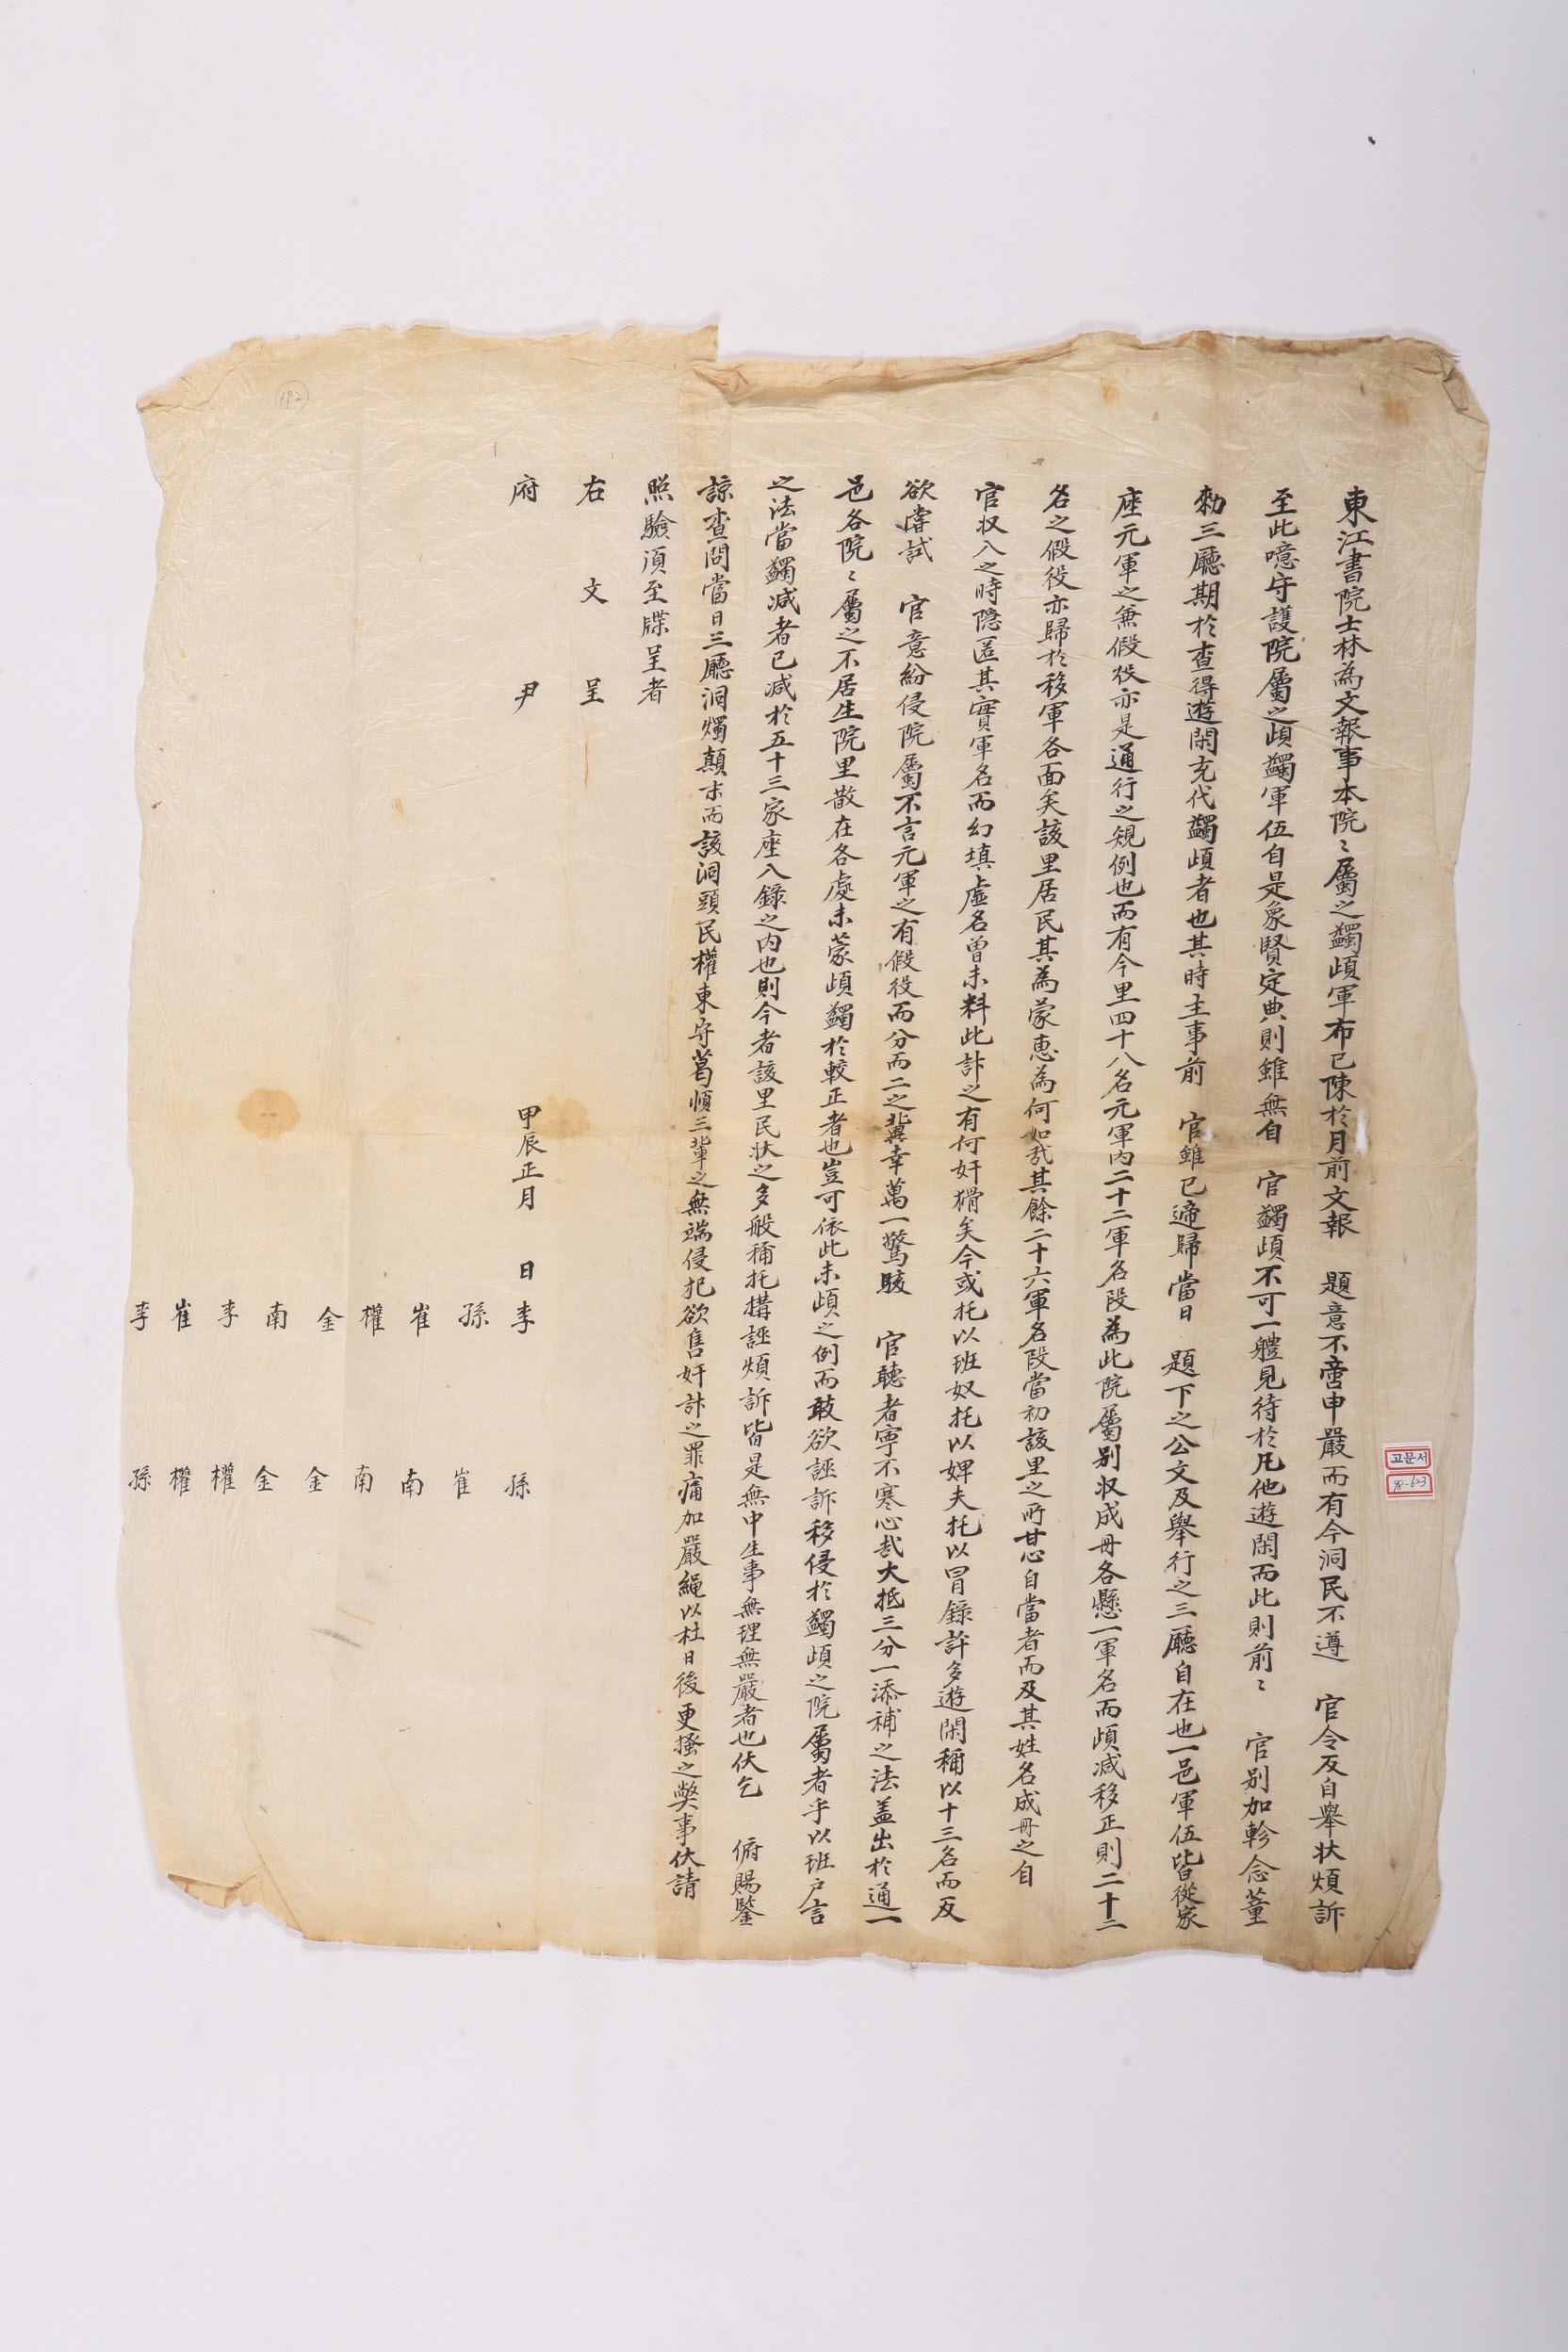 東江書院士林為文報事本院〻屬之蠲頉軍布已陳於月前文報　題意不啻申嚴而有今洞民不遵　官令反自擧状煩訴
至此噫守護院屬之頉蠲軍伍自是象賢定典則雖無自　官蠲頉不可一軆見待於凡他遊閑而此則前〻　官別加軫念董
勑三廳期於查得遊閑充代蠲頉者也其時主事前　官雖已遞歸當日　題下之公文及擧行之三廳自在也一邑軍伍皆從家
座元軍之兼假役亦是通行之規例也而有今里四十八名元軍內二十二軍名段為此院屬別収成冊各懸一軍名而頉减移正則二十二
名之假役亦歸於移軍各面矣該里居民其為蒙惠為何如哉其餘二十六軍名段當初該里之所甘心自當者而及其姓名成冊之自
官収入之時隱匿其實軍名而幻填虛名曾未料此計之有何奸猾矣今或托以班奴托以婢夫托以冒錄許多遊閑稱以十三名而反
欲嘗試　官意紛侵院屬不言元軍之有假役而分而二之冀幸萬一驚駭　官聽者寧不寒心哉大抵三分一添補之法盖出於通一
邑各院〻屬之不居生院里散在各處未蒙頉蠲於較正者也豈可依此未頉之例而敢欲誣訴移侵於蠲頉之院屬者乎以班戶言
之法當蠲减者已减於五十三家座入錄之內也則今者該里民状之多般稱托搆誣煩訴皆是無中生事無理無嚴者也伏乞　俯賜鑒
諒查問當日三廳洞燭顛末而該洞頭民權東守葛順三輩之無端侵犯欲售奸計之罪痛加嚴繩以杜日後更搔之獘事伏請
照驗湏至牒呈者
右　文　呈
府　尹
甲辰正月　日李　孫
孫　崔
崔　南
權　南
金　金
南　金
李　權
崔　權
李　孫
고문서
98-623
192